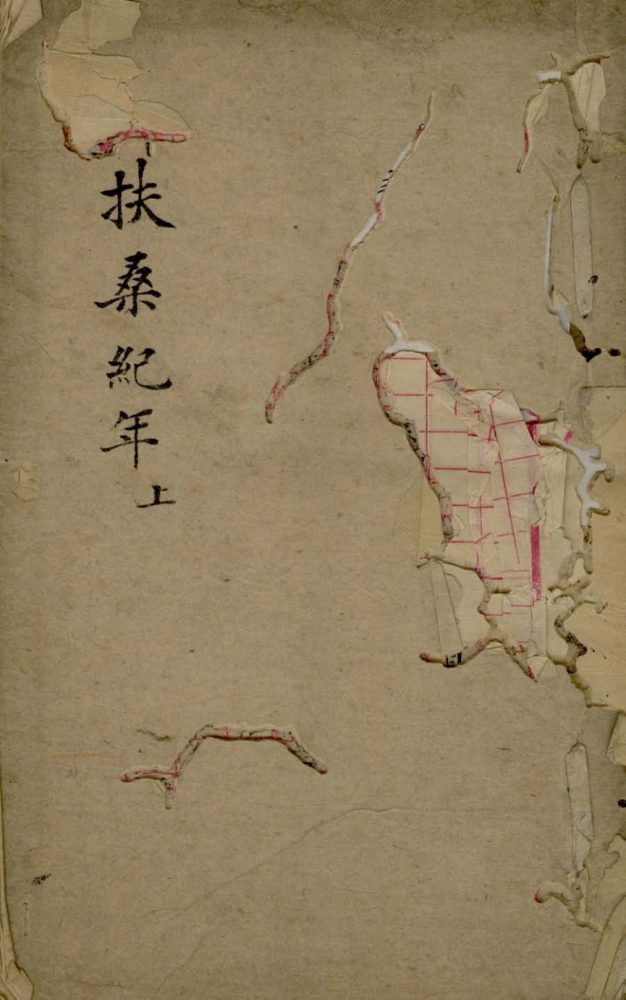 扶桑紀年上